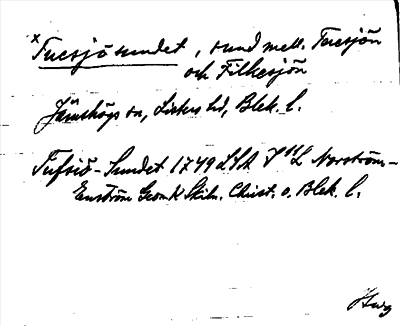 x Tuesjösundet, sund mell. Tuesjön
och Filkesjön
Jämshögs sn, Listers hd, Blek. l.
Tufsiö-Sundet 1749 LSA Norström-
Enström Geom K Skiln. Christ. o. Blek. l.